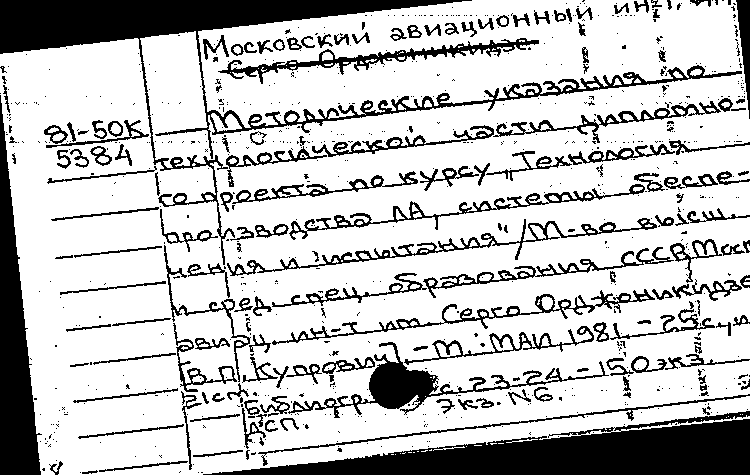 Московский авиационный ин-т.
Серго Орджоникидзе
81-50К
5384
Методические указания по
технологической части дипломно-
го проекта по курсу „Технология
производства ЛА, системы обеспе-
чения и испытания" / М-во высш.
и сред. спец. образования СССР, Моск
авиац. ин-т им. Серго Орджоникидзе
[В.П. Купрович]. - М.: МАИ, 1981. - 25с., и
21см.
Библиогр. с. 23-24. - 150 экз.
ДСП. Экз. N6.